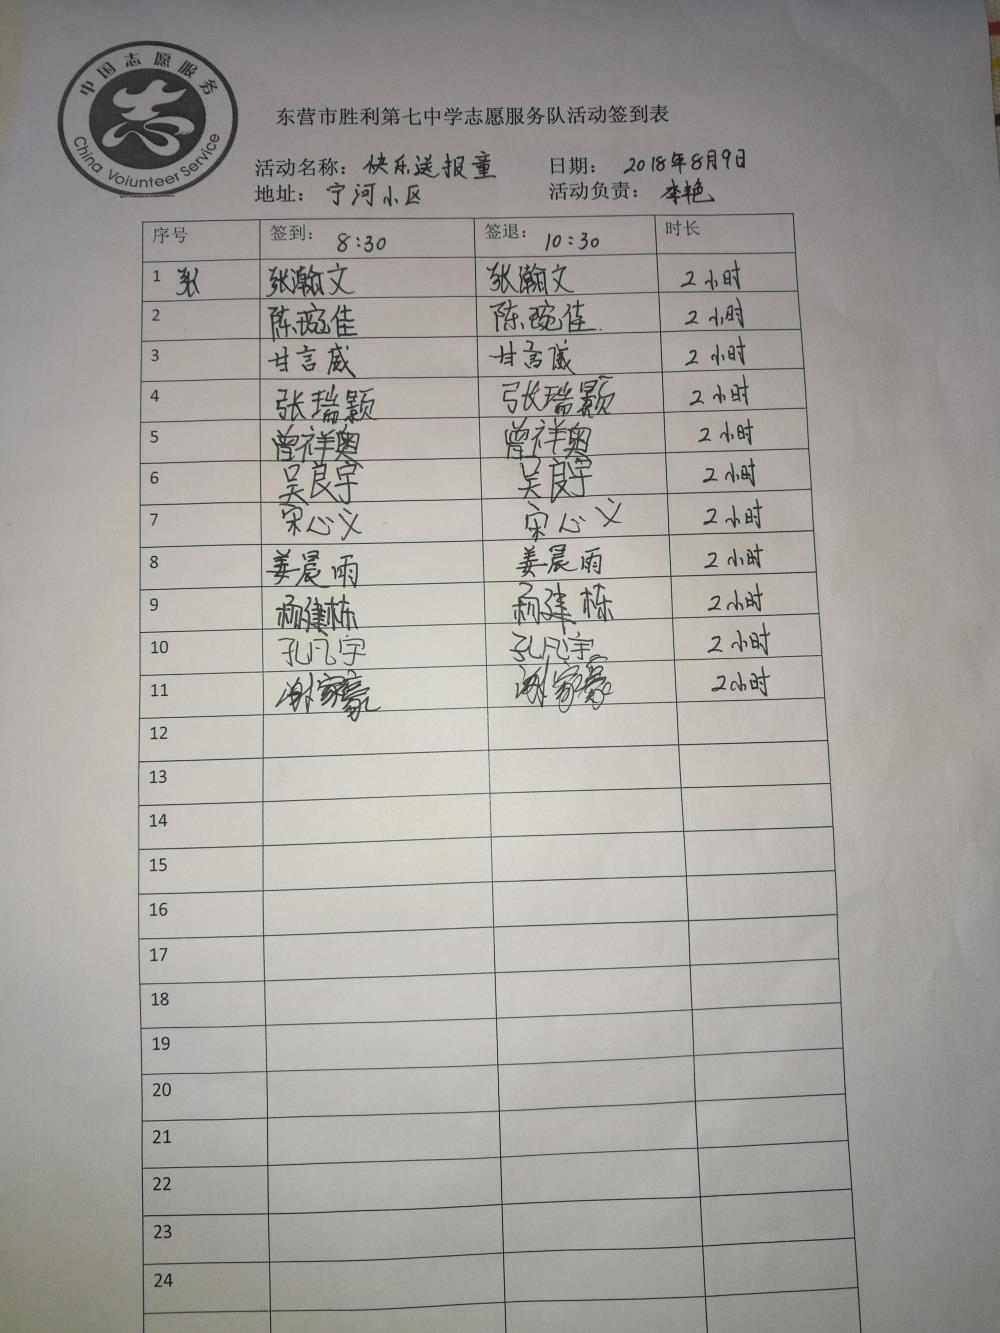 中国志愿服务
China Volunteer Service
东营市胜利第七中学志愿服务队活动签到表
活动名称：快乐送报童 日期：2018年8月9日
地址：宁河小区 活动负责：李艳
序号 签到：8:30 签退：10:30 时长
1 张 张瀚文 张瀚文 2小时
2 陈琬佳 陈琬佳 2小时
3 甘言威 甘言威 2小时
4 张瑞颢 张瑞颢 2小时
5 曾祥奥 曾祥奥 2小时
6 吴良宇 吴良宇 2小时
7 宋心义 宋心义 2小时
8 姜晨雨 姜晨雨 2小时
9 杨建栋 杨建栋 2小时
10 孔凡宇 孔凡宇 2小时
11 谢家豪 谢家豪 2小时
12
13
14
15
16
17
18
19
20
21
22
23
24